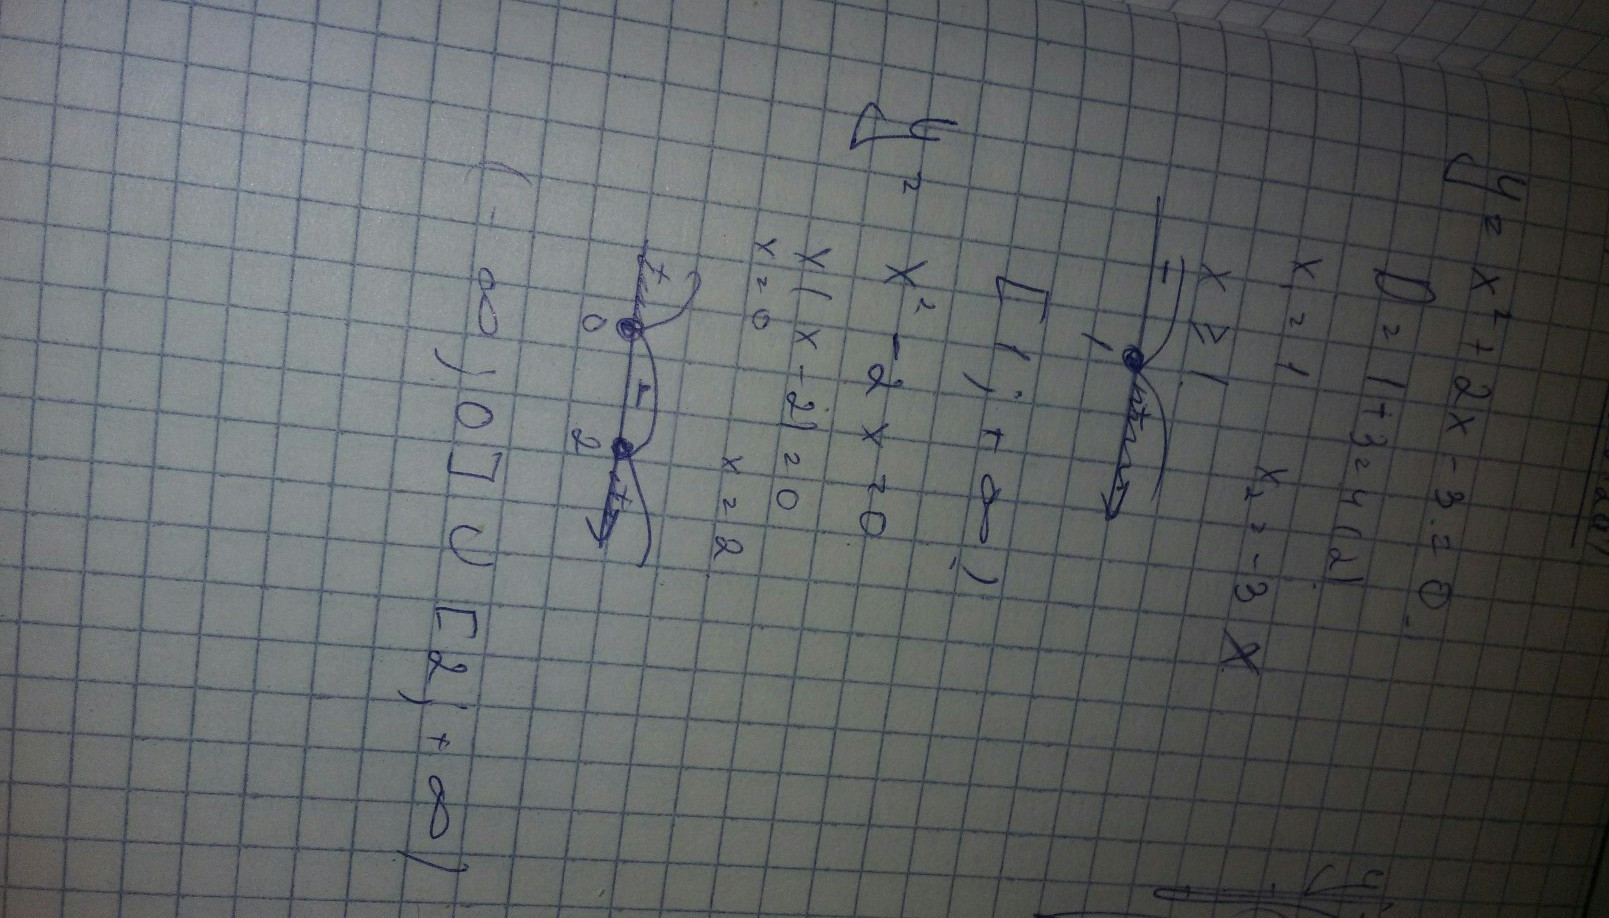 y = x² + 2x - 3 = 0
D = 1 + 3 = 4 (2)
x₁ = 1
x₂ = -3
x ≥ 1
- +
1
[1; +∞)
y = x² - 2x = 0
x(x - 2) = 0
x = 0 x = 2
+ - +
0 2
(-∞; 0] ∪ [2; +∞)
y